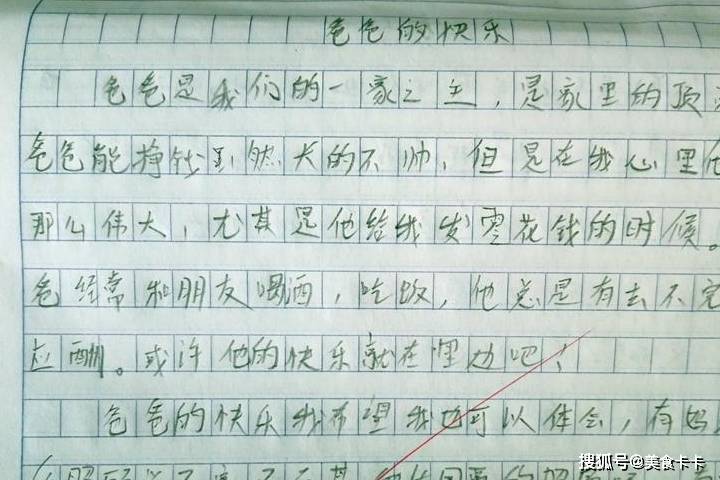 爸爸的快乐
爸爸是我们的一家之主，是家里的顶
爸爸能挣钱虽然长的不帅，但是在我心里他
那么伟大，尤其是他给我发零花钱的时候。
爸经常和朋友喝酒，吃饭，他总是有去不完
应酬。或许他的快乐就在里边吧！
爸爸的快乐我希望我也可以体会，有妈
搜狐号@美食卡卡